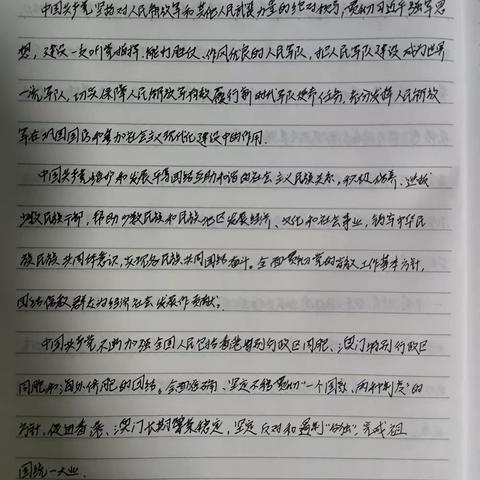 中国共产党坚持对人民解放军和其他人民武装力量的绝对领导，贯彻习近平强军思
想，建设一支听党指挥、能打胜仗、作风优良的人民军队，把人民军队建设成为世界
一流军队，切实保障人民解放军有效履行新时代军队使命任务，充分发挥人民解放
军在巩固国防和参加社会主义现代化建设中的作用.
中国共产党维护和发展平等团结互助和谐的社会主义民族关系，积极培养、选拔
少数民族干部，帮助少数民族和民族地区发展经济、文化和社会事业，铸牢中华民
族民族共同体意识，实现各民族共同团结奋斗。全面贯彻党的宗教工作基本方针，
团结信教群众为经济社会发展作贡献。
中国共产党不断加强全国人民包括香港特别行政区同胞、澳门特别行政区
同胞和海外侨胞的团结。全面准确、坚定不移贯彻“一个国家、两种制度”的
方针，促进香港、澳门长期繁荣稳定，坚定反对和遏制“台独”，完成祖
国统一大业.